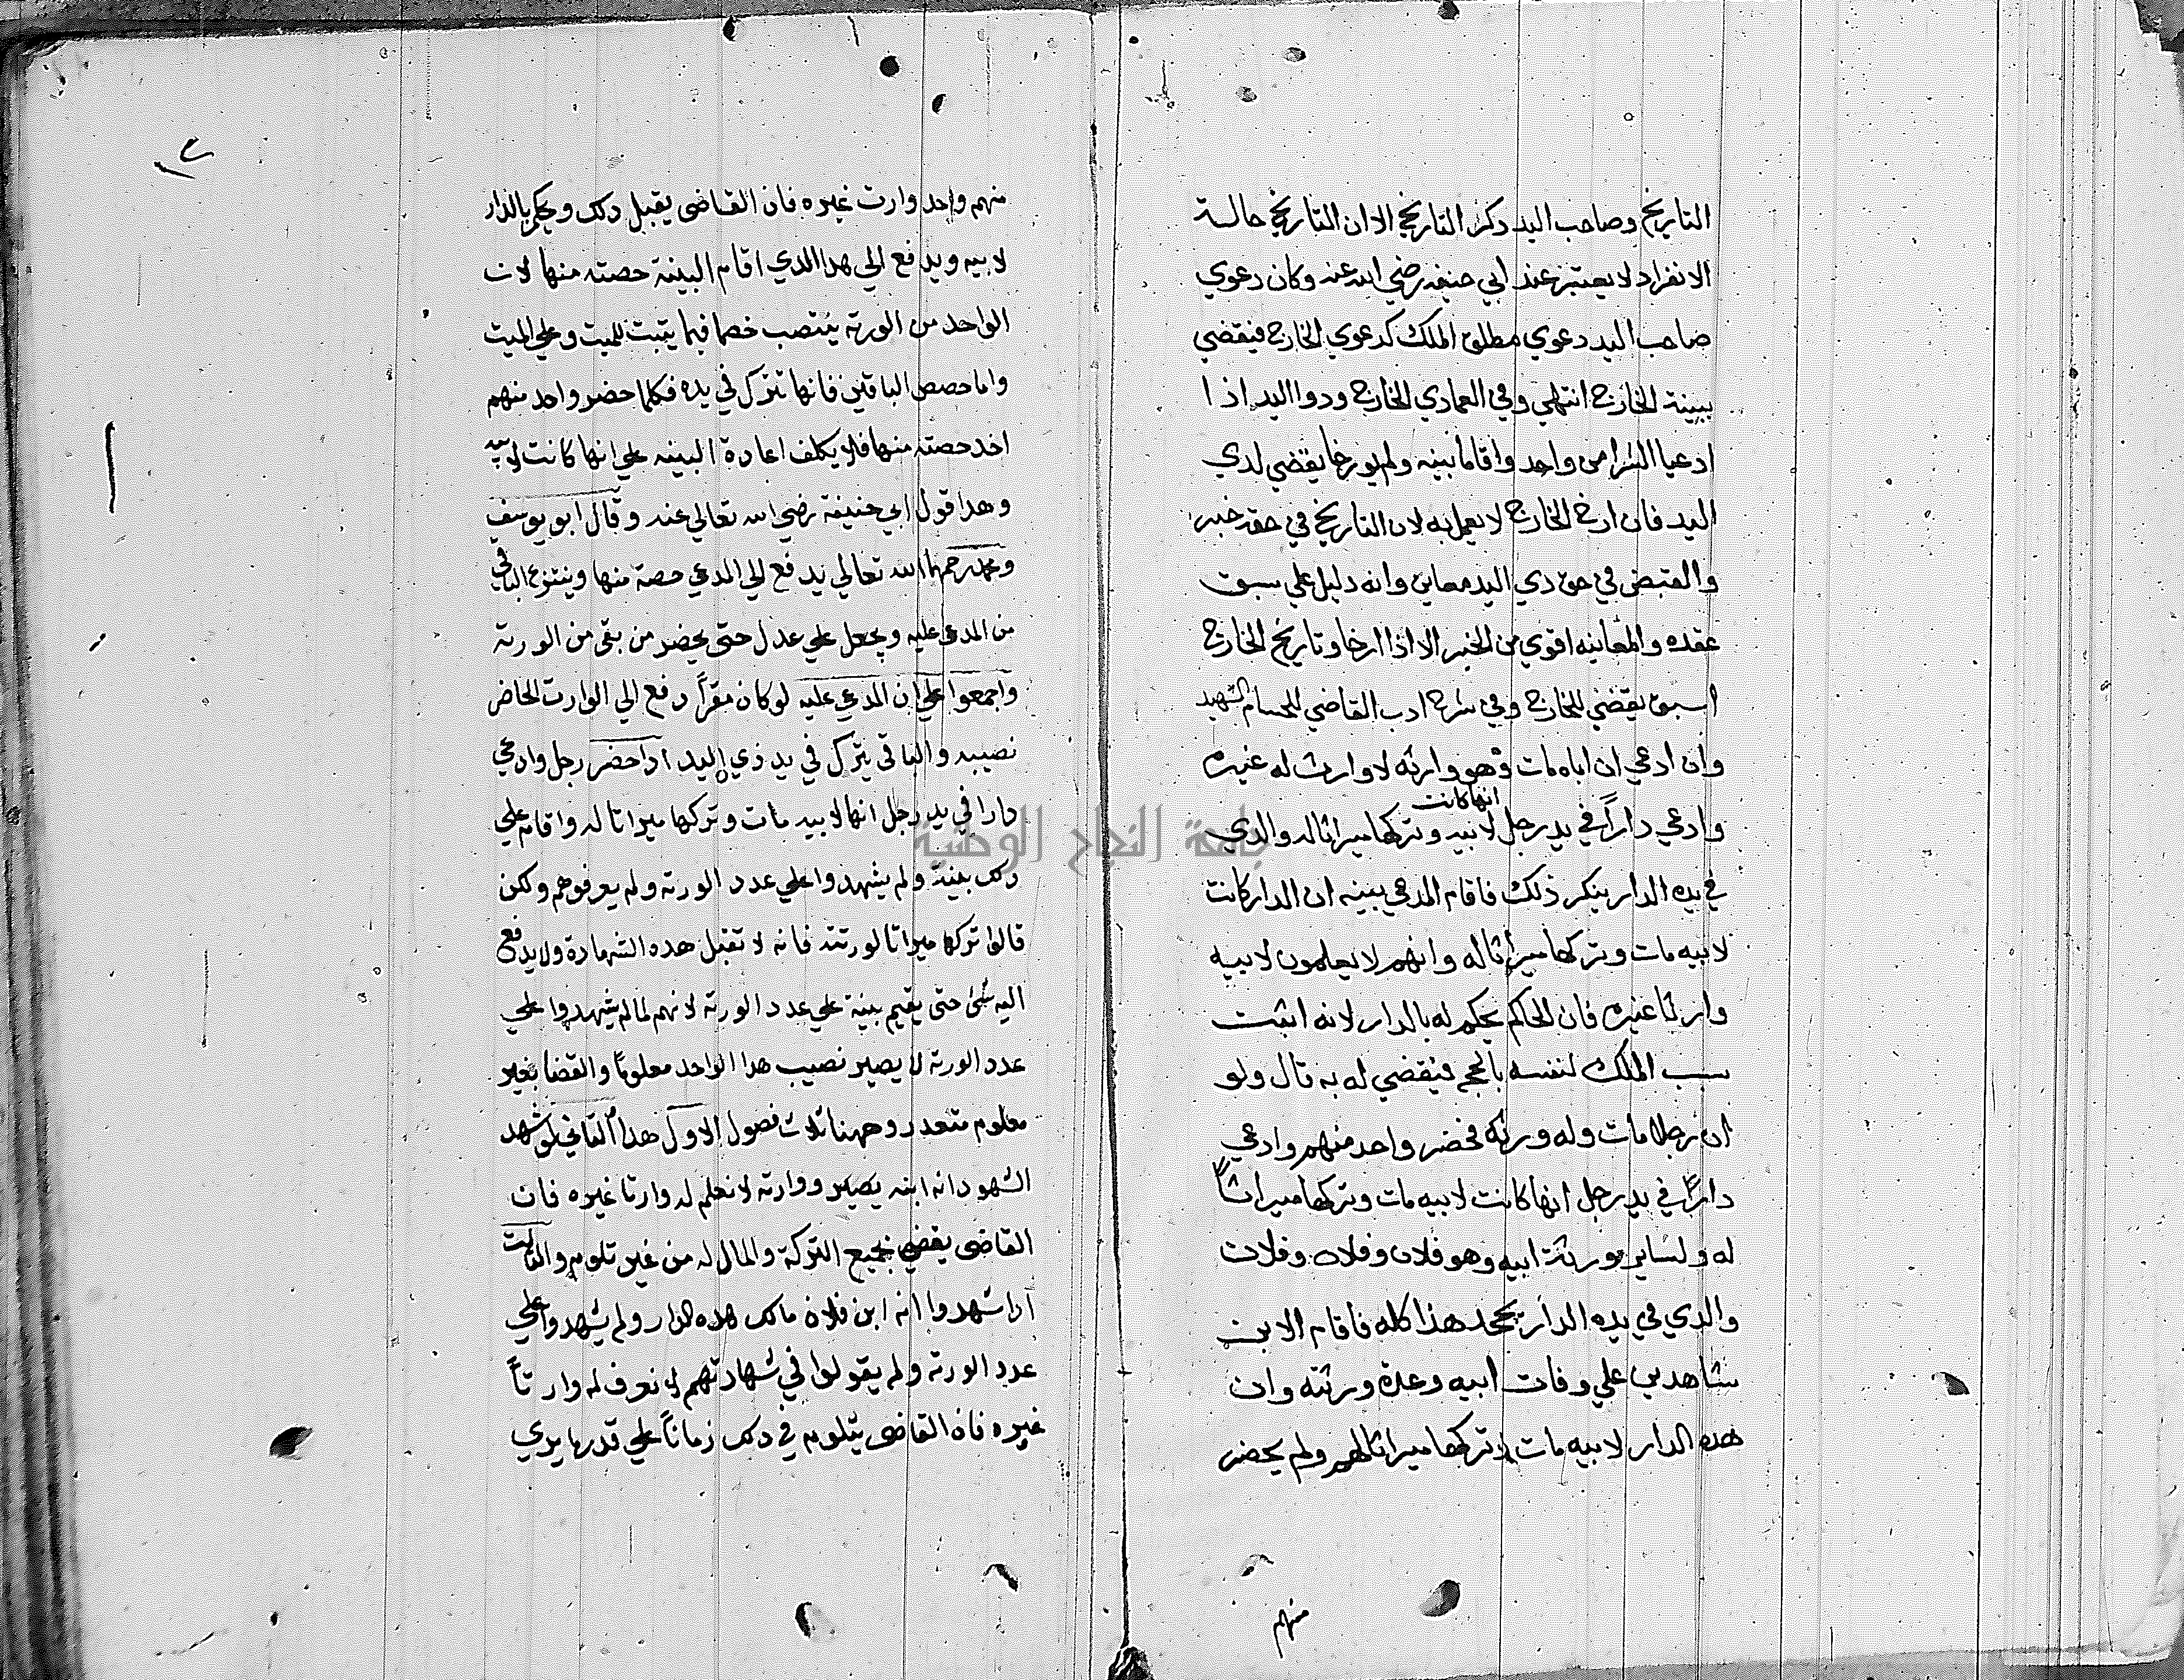 التاريخ وصاحب اليد ذكر التاريخ الا ان التاريخ حالة
الانفراد لا يعتبر عند ابي حنيفه رضي الله عنه وكان دعوي
صاحب اليد دعوي مطلق الملك كدعوي الخارج فيقضي
ببينة الخارج انتهي وفي العمادي الخارج وذوا اليد اذا
ادعيا الشرا من واحد واقاما بينه ولم يورخا يقضي لذي
اليد فان ارخ الخارج لا يعمل به لان التاريخ في حقه خبر
والقبض في حق ذي اليد معاين وانه دليل علي سبق
عقده والمعاينه اقوي من الخبر الا اذا ارخا وتاريخ الخارج
اسبق يقضي للخارج وفي شرح ادب القاضي للحسام الشهيد
وان ادعي ان اباه مات وهو وارثه لا وارث له غيره
وادعي داراً في يد رجل انها كانت لابيه وتركها ميراثا له والذي
في يده الدار ينكر ذلك فاقام المدعي ببينه ان الدار كانت
لابيه مات وتركها ميراثا له وانهم لا يعلمون لابيه
وارثا غيره فان الحاكم يحكم له بالدار لانه اثبت
سبب الملك لنفسه بالحجج فيقضي له به قال ولو
ان رجلا مات وله ورثه فحضر واحد منهم وادعي
داراً في يد رجل انها كانت لابيه مات وتركها ميراثاً
له ولساير ورثة ابيه وهو فلان وفلان وفلان
والذي في يده الدار يجحد هذا كله فاقام الابن
شاهدين علي وفات ابيه وعدة ورثته وان
هذه الدار لابيه مات وتركها ميراثا لهم ولم يحضر
منهم
منهم واحد وارت غيره فان القاضى يقبل دلك ويحكم بالدار
لابيه ويدفع الي هدا الدي اقام البينة حصته منها لان
الواحد من الورتة ينتصب خصما فيما يتبت للميت وعلي الميت
واما حصص الباقين فانها تترك في يده فكلما حضر واحد منهم
اخد حصته منها فلا يكلف اعادة البينه علي انها كانت لابيه
وهدا قول ابي حنيفة رضي الله تعالي عنه وقال ابو يوسف
ومحمد رحمهما الله تعالي يدفع الي المدعي حصة منها وينتزع الباقي
من المدعي عليه ويجعل علي عدل حتى يحضر من بقى من الورتة
واجمعوا علي ان المدعي عليه لو كان مقراً دفع الي الوارت الحاضر
نصيبه والباقي يترك في يد ذي اليد ادا حضر رجل وادعي
دارا في يد رجل انها لابيه مات وتركها ميراتا له واقام علي
دلك بينة ولم يشهدوا علي عدد الورتة ولم يعرفوهم ولكن
قالوا تركها ميراتا لورتته فانه لا تقبل هده الشهادة ولا يدفع
اليه شئ حتى يقيم بينة علي عدد الورتة لانهم لما لم يشهدوا علي
عدد الورتة لا يصير نصيب هدا الواحد معلوماً والقضا بغير
معلوم متعدر وههنا تلات فصول الاول هدا التاني لو شهد
الشهود انه ابنه ووارته لا نعلم له وارتا غيره فان
القاضى يقضي بجميع التركة والمال له من غير تلوم والتالت
ادا شهدوا انه ابن فلان مالك هده الدار ولم يشهدوا علي
عدد الورتة ولم يقولوا في شهادتهم لا نعرف له وارتاً
غيره فان القاضى يتلوم في دلك زماناً علي قدر ما يري